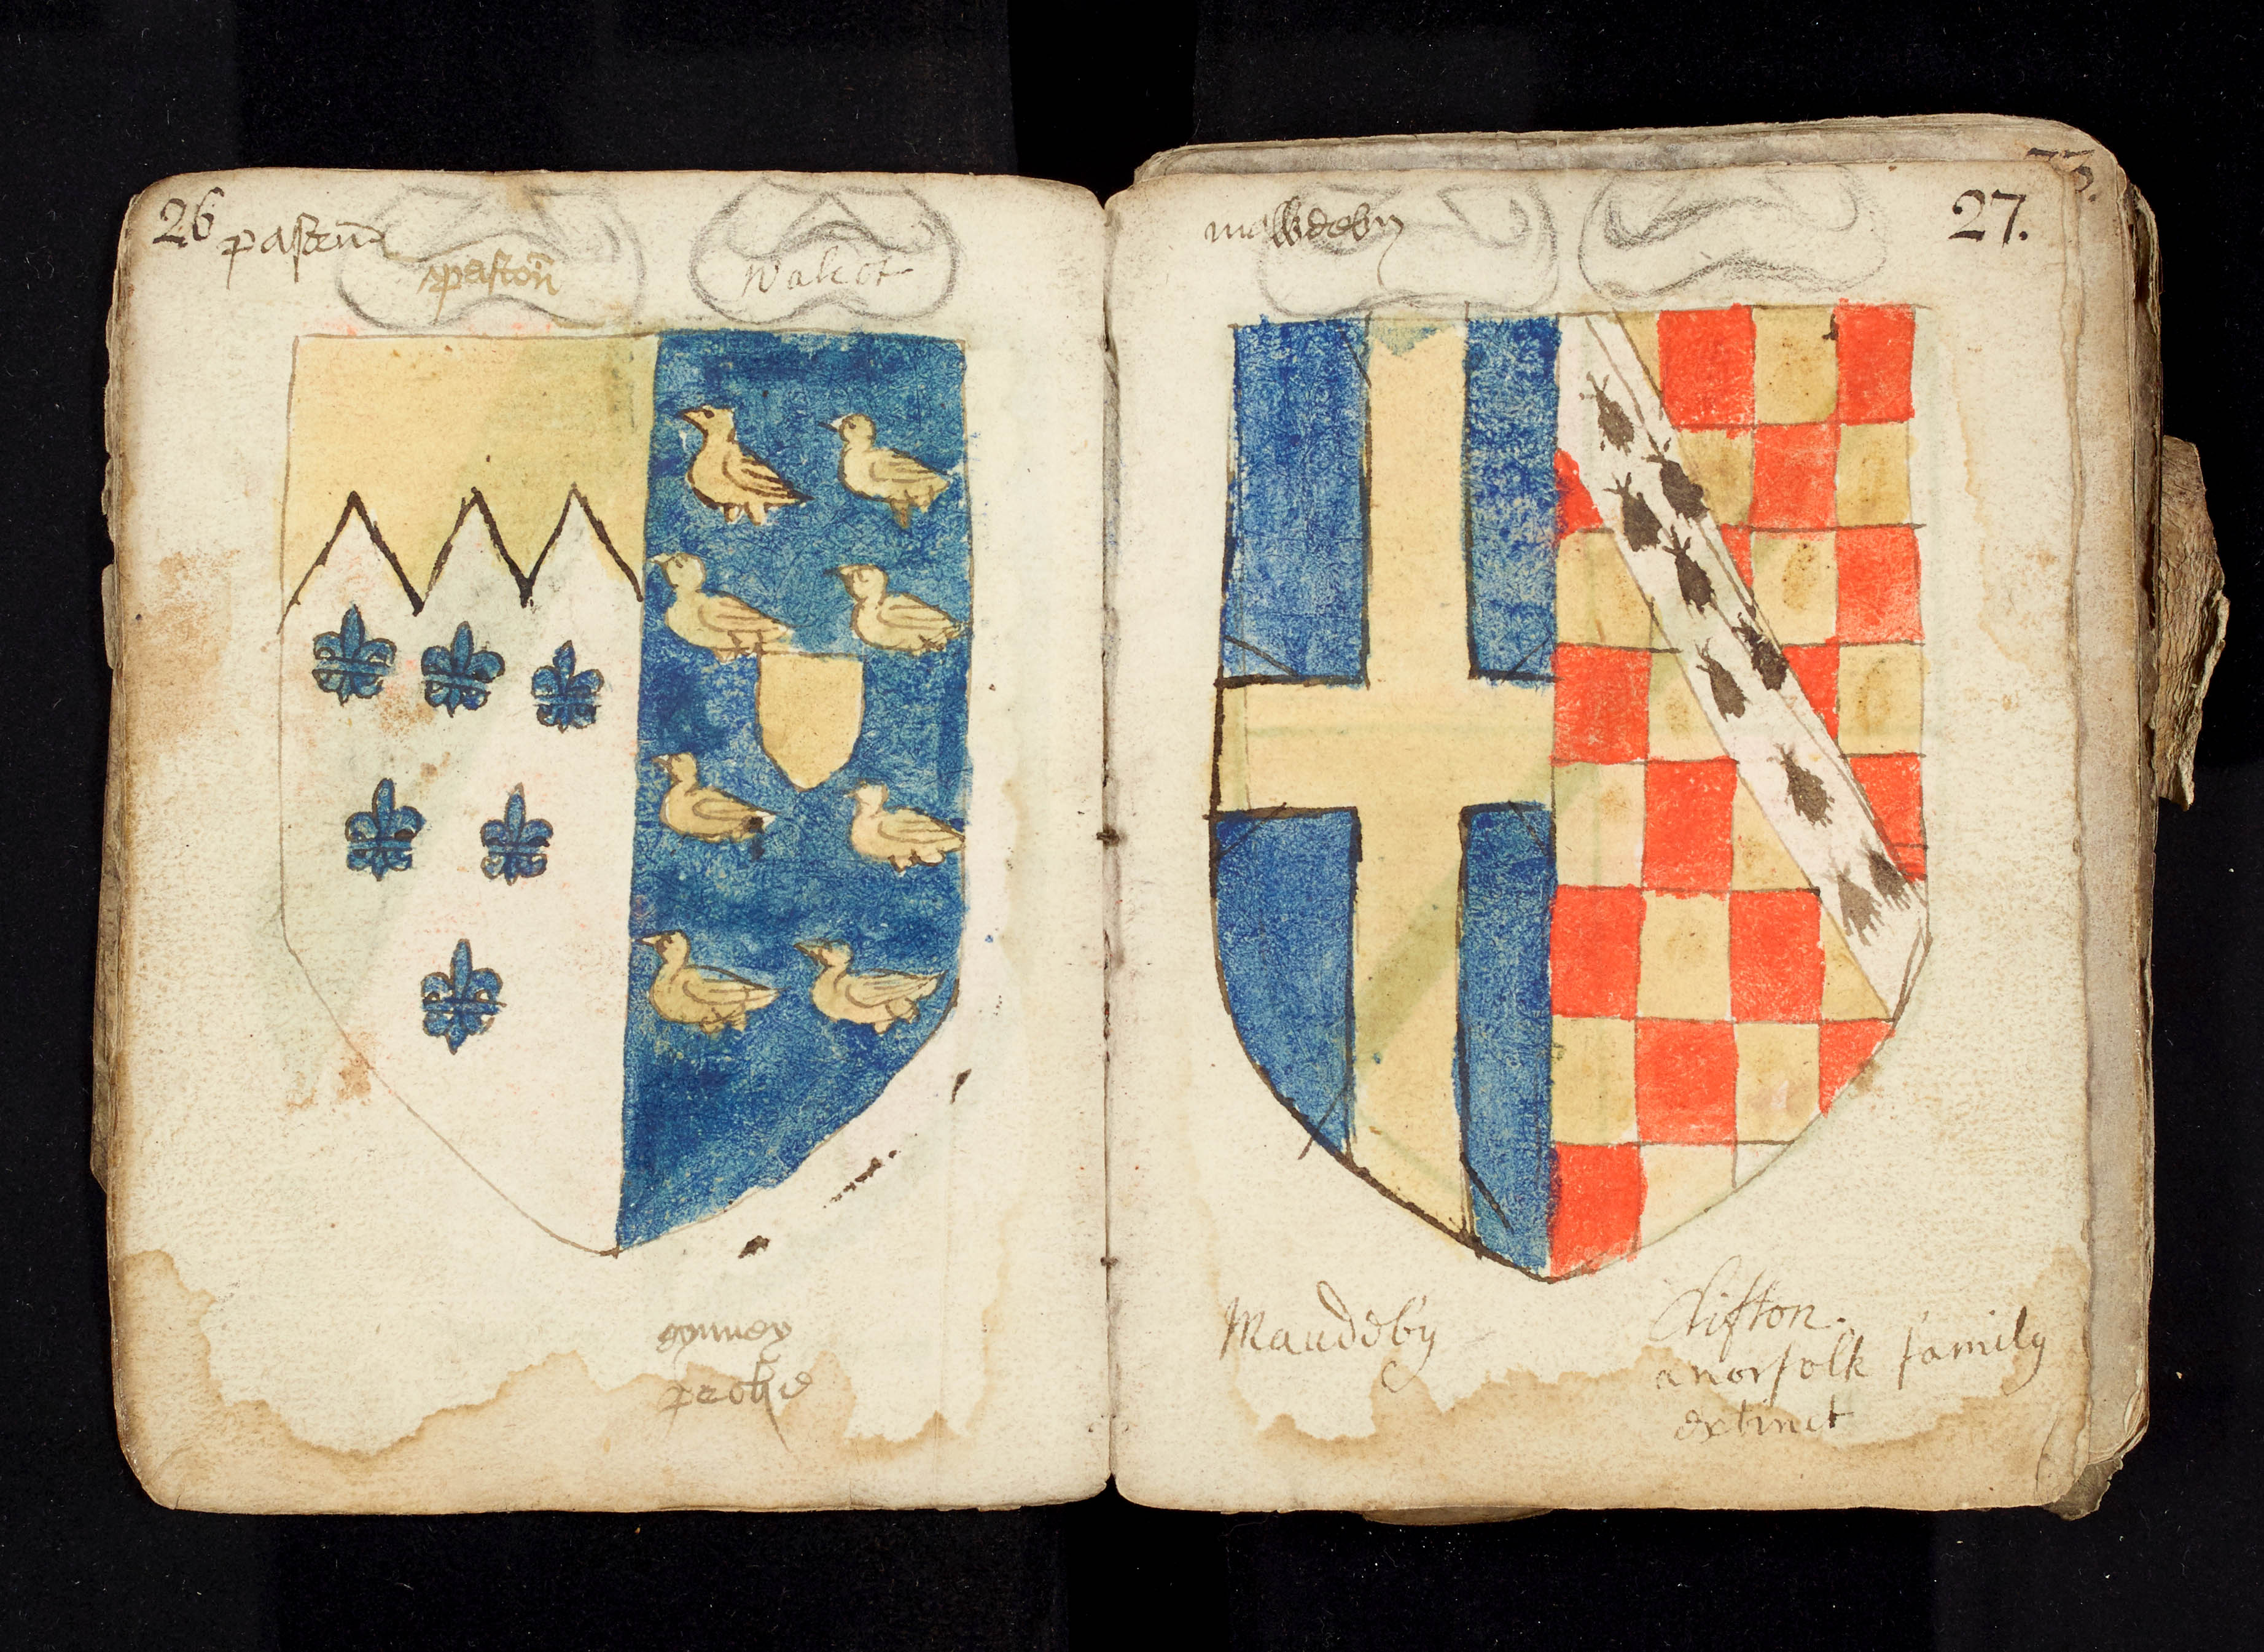 26
pastun
paston
Walcot
gynney
probe
27.
mawdeby
Maudeby
Clifton.
a norfolk family
extinct